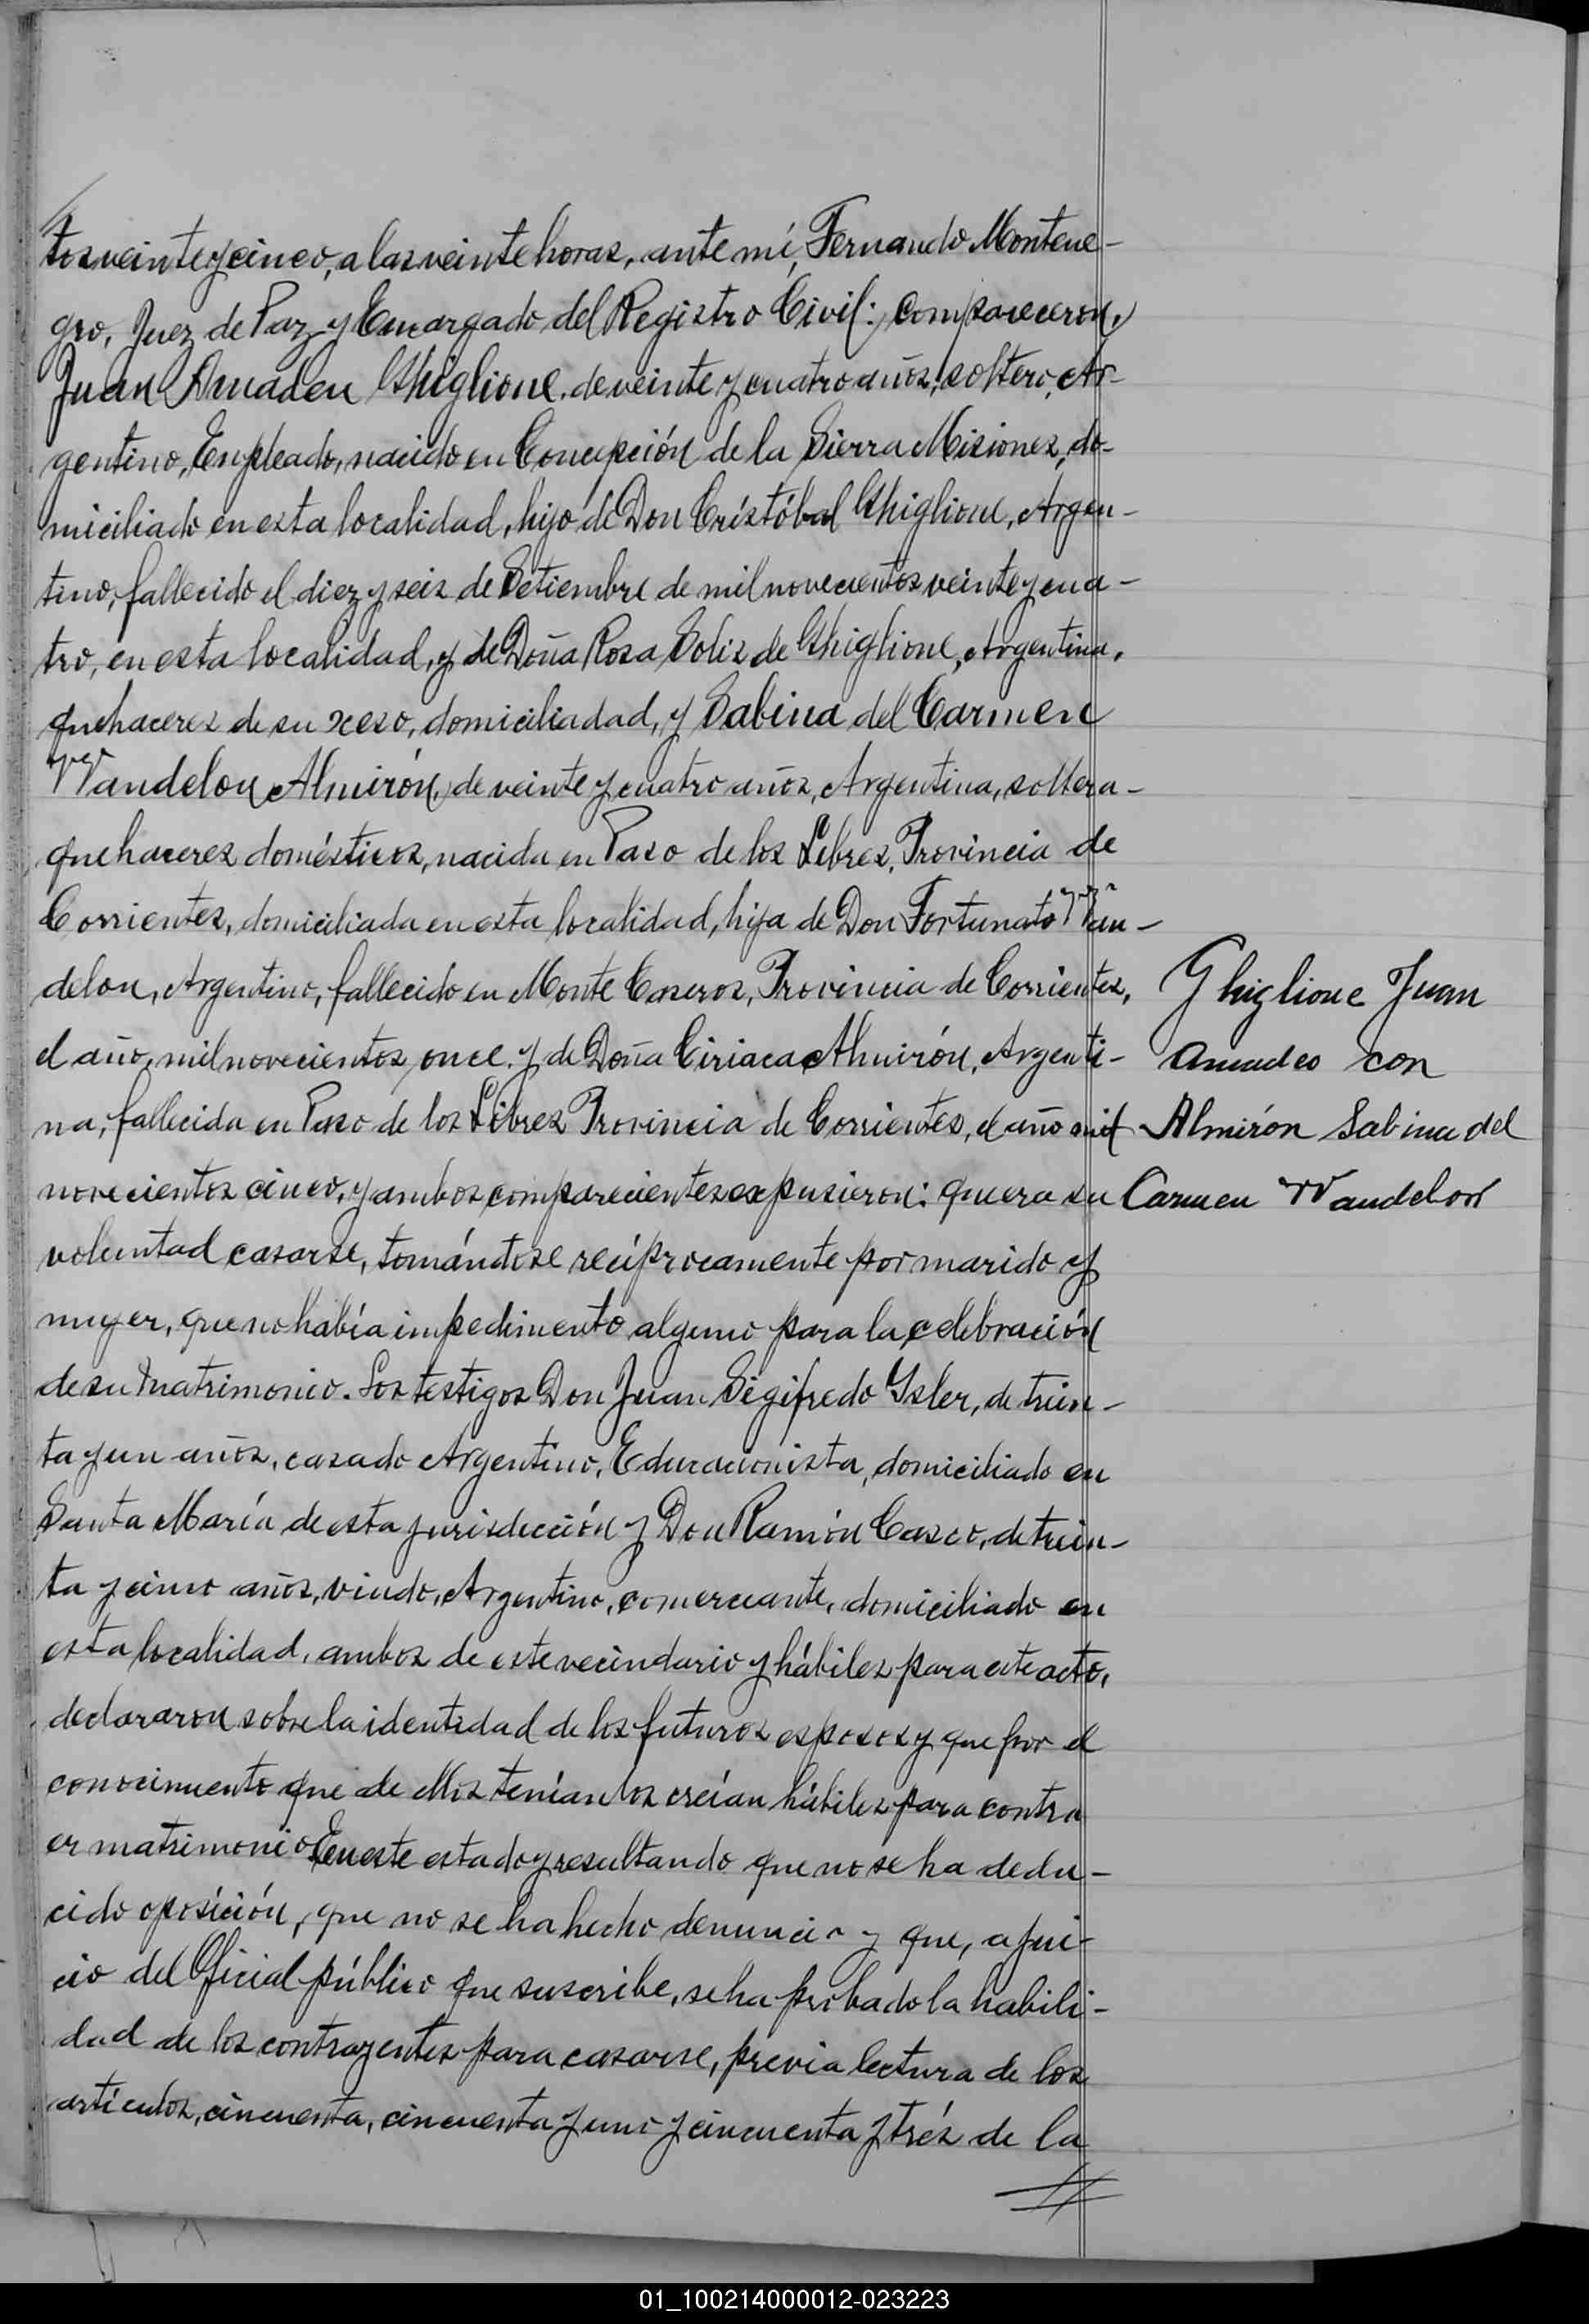 tos veinte y cinco, a las veinte horas, ante mí, Fernando Montene-
gro, Juez de Paz y Encargado del Registro Civil: comparecieron,
Juan Amadeu Ghiglione, de veinte y cuatro años, soltero, Ar-
gentino, Enpleado, nacido en Concepción de la Sierra Misiones, do-
miciliado en esta localidad, hijo de Don Crístóbal Ghiglione, Argen-
tino, fallecido el diez y seis de Setiembre de mil novecientos veinte y cua-
tro, en esta localidad, y de Doña Rosa Solis de Ghiglione, Argentina,
quehaceres de su xeso, domiciliadad, y Sabina del Carmen
Wandelou Almirón, de veinte y cuatro años, Argentina, soltera-
quehaceres domésticos, nacida en Paso de los Libres, Provincia de
Corrientes, domiciliada en esta localidad, hija de Don Fortunato Wan-
delou, Argentino, fallecido en Monte Caseros, Provincia de Corrientes,
el año, mil novecientos, once, y de Doña Ciriaca Almirón, Argenti-
na, fallecida en Paso de los Libres Provincia de Corrientes, el año mil
novecientos cinco, y ambos comparecientes expusieron: que era su
voluntad casarse, tomándose recíprocamente por marido y
mujer, que no había impedimento alguno para la celebración
de su matrimonio. Los testigos Don Juan Sigifredo Ysler, de trein-
ta y un años, casado Argentino, Educacionista, domiciliado en
Santa María de esta jurisdicción y Don Ramón Casco, de trein-
ta y cinco años, viudo, Argentino, comerciante, domiciliado en
esta localidad, ambos de este vecindario y hábiles para este acto,
declararon sobre la identidad de los futuros esposos y que por el
conocimiento que de ellos tenían los creían hábiles para contra
er matrimonio. En este estado y resultando que no se ha dedu-
cido oposición, que no se ha hecho denuncia y que, a jui-
cio del Oficial público que suscribe, se ha probado la habili-
dad de los contrayentes para casarse, previa lectura de los
artículos, cincuenta, cincuenta y uno y cincuenta y trés de la
Ghiglione Juan
Amadeo con
Almirón Sabina del
Carmen Wandelou
01_100214000012-023223